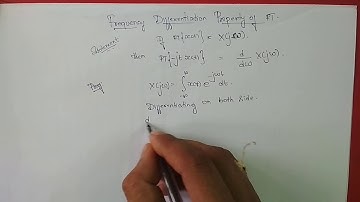 Frequency Differentiation Property of FT.
Statement If FT{x(t)} = X(jω).
then FT{-jt x(t)} = d/dω X(jω).
Proof X(jω) = ∫_{-∞}^{∞} x(t) e^{-jωt} dt.
Differentiating on both side.
d